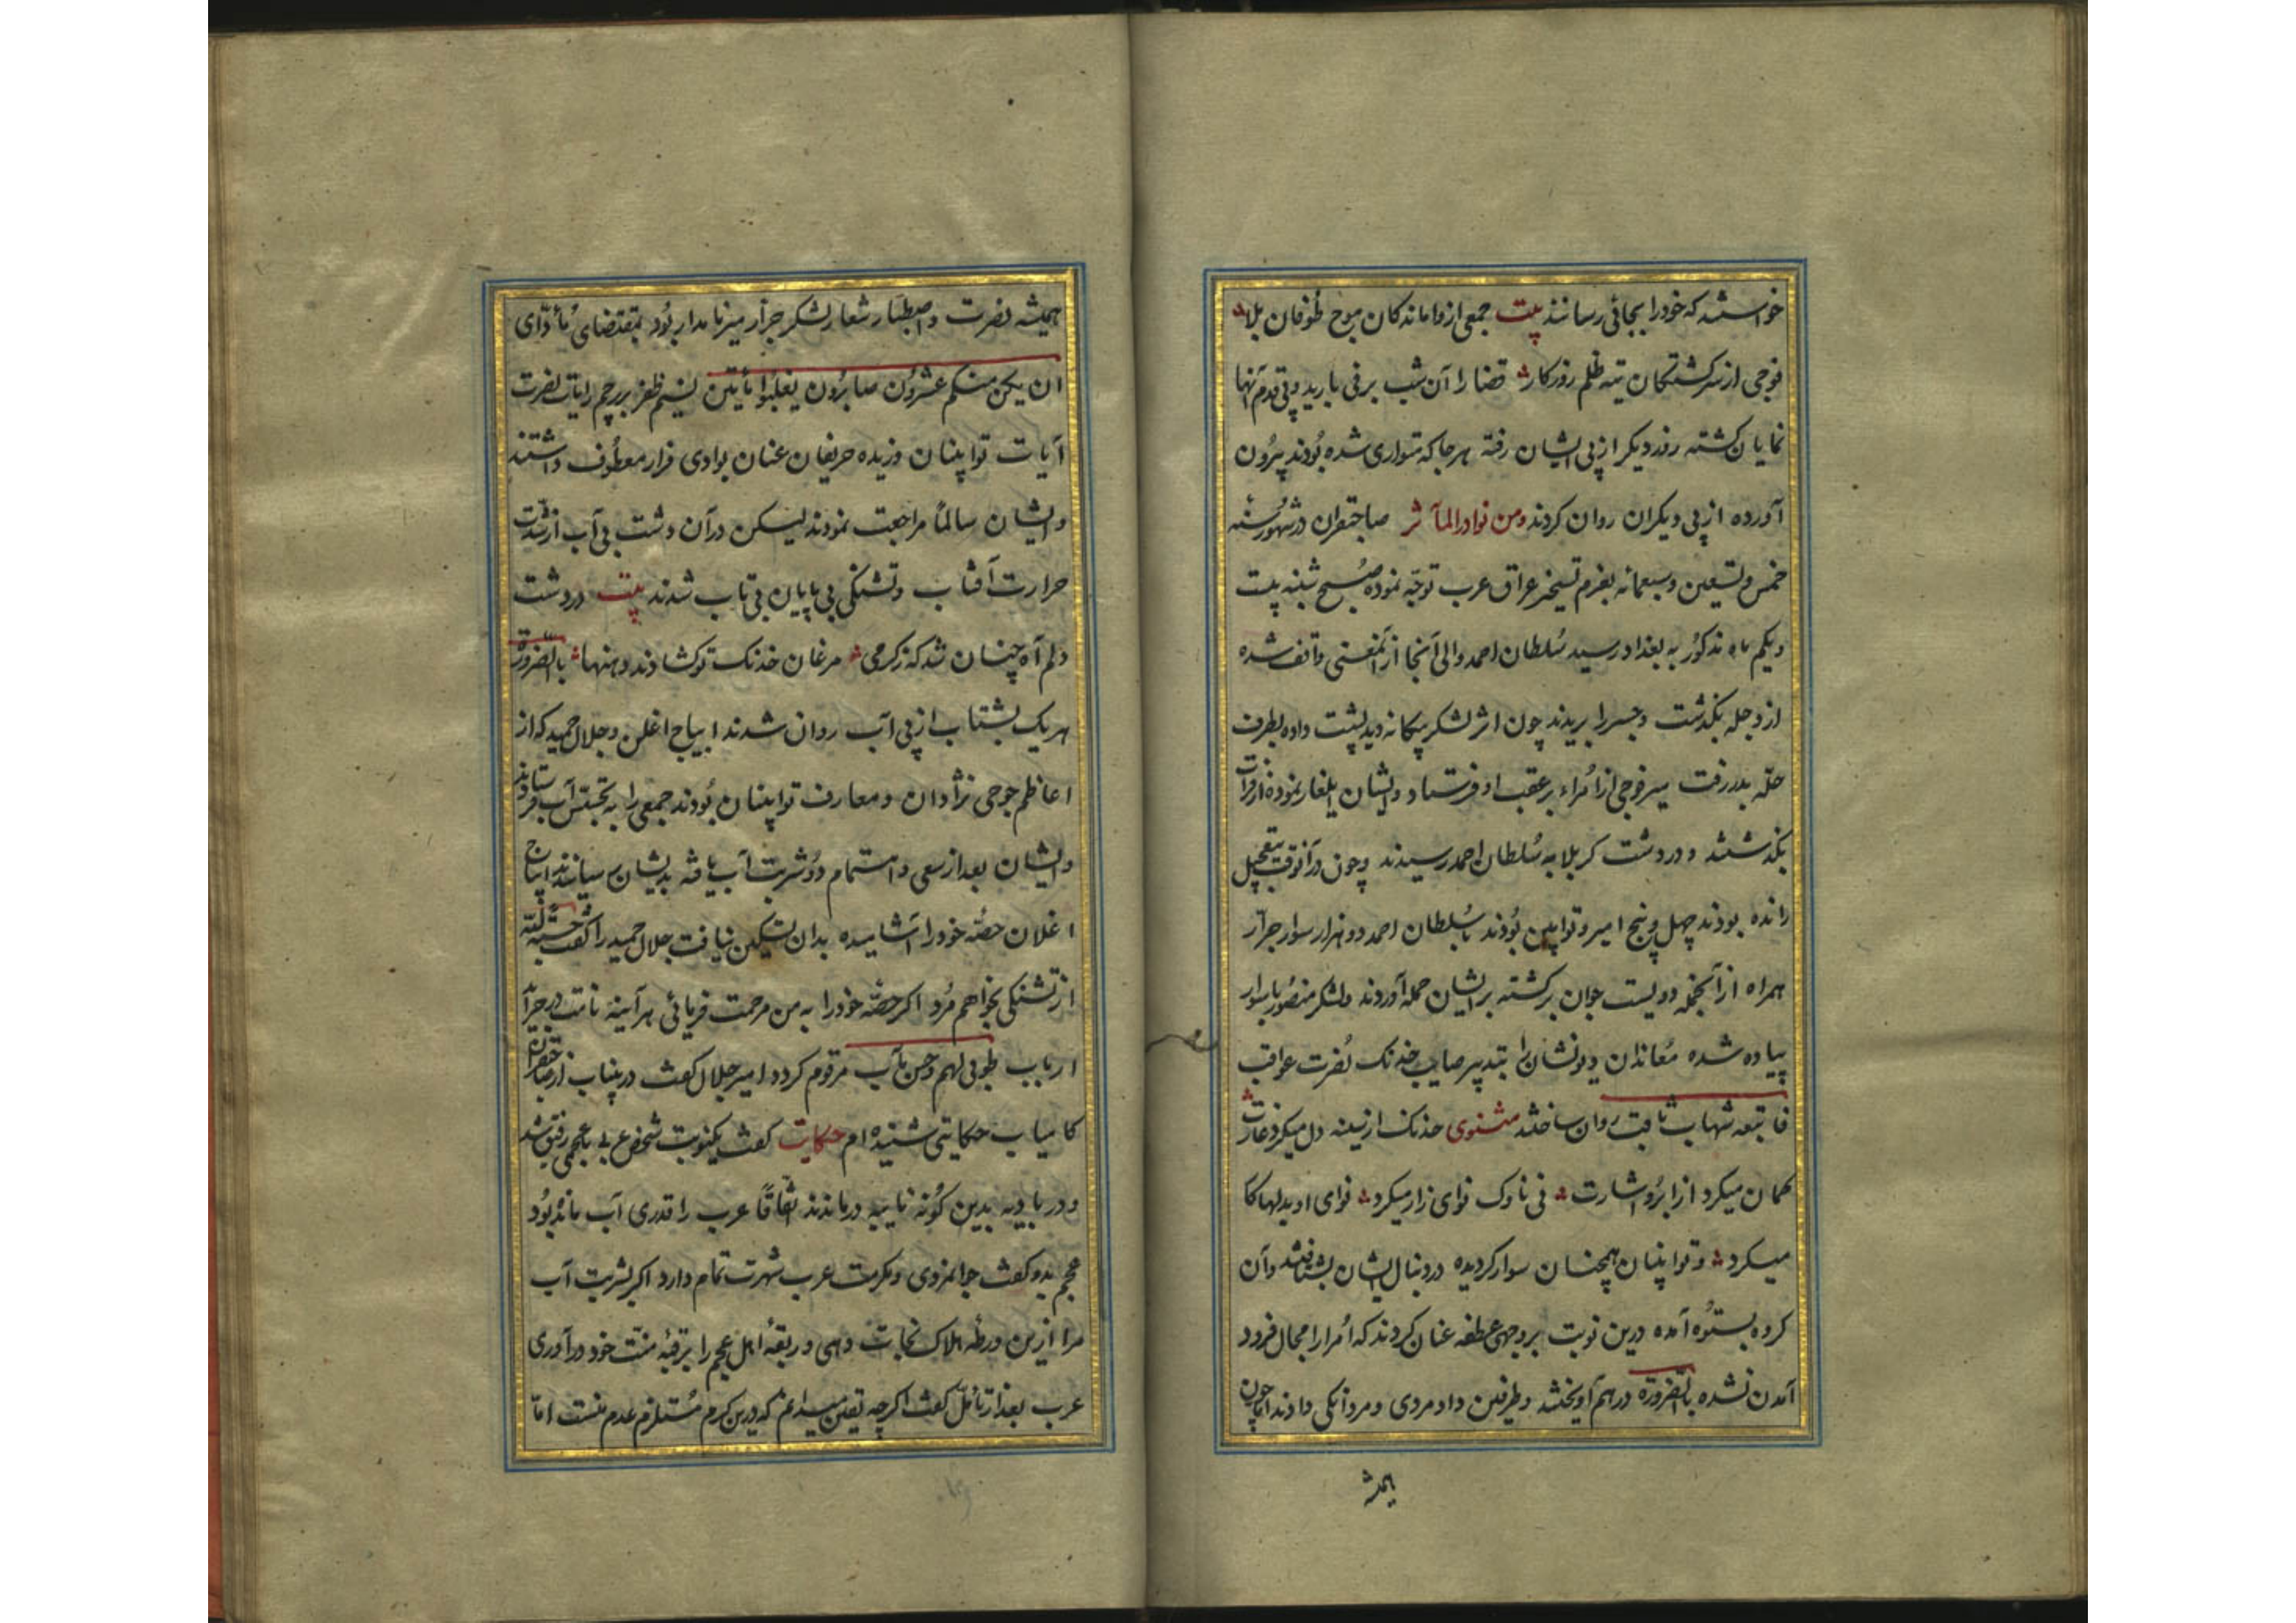 خواستند که خود را بجائی رسانند بیت جمعی از وامانده کان موج طوفان بلا
فوجی از سرکشتکان تیه ظلم روزکار قضا را آن شب برفی بارید و پی قدم آنها
نمایان کشته روز دیکر از پی ایشان رفته هر جا که متواری شده بودند بیرون
آورده از پی دیکران روان کردند ومن نوادر المآثر صاحبقران در شهور سنه
خمس وتسعین وسبعمائه بعزم تسخیر عراق عرب توجه نموده صبح شنبه بیست
ویکم ماه مذکور به بغداد رسید سلطان احمد والی آنجا ازین معنی واقف شده
از دجله بکذشت وجسر را بریدند چون اثر لشکر بیکانه دید پشت داده بطرف
حله بدر رفت میر فوجی از امراء بر عقب او فرستاد وایشان ایلغار نموده از فرات
بکذشتند و در دشت کربلا به سلطان احمد رسیدند وچون در آنوقت بتعجیل
رانده بودند چهل وپنج امیر وتوابین بودند با سلطان احمد دو هزار سوار جرار
همراه از آنجمله دویست جوان برکشته بر ایشان حمله آوردند ولشکر منصور با سوار
پیاده شده معاندان دیونشان را بتدبیر صایب خدنک نصرت عواقب
فاتبعه شهاب ثاقب روان ساختند مثنوی خدنک از سینه دل میکرد غارت
کمان میکرد از ابرو اشارت نی ناوک نوای زار میکرد نوای او بدلها کا
میکرد وتوابینان همچنان سوار کردیده در دنبال ایشان بشتافتند وآن
کروه بستوه آمده درین نوبت بر وجهی عطفه عنان کردند که امرا را مجال فرود
آمدن نشده بالضروره در هم آویختند وطرفین داد مردی ومردانکی دادند اما چون
همیشه
همیشه نصرت واصطبار شعار لشکر جرار میرزا مدار بود بمقتضای مأدّای
ان یکن منکم عشرون صابرون یغلبوا مأیتین نسیم ظفر بر پرچم رایات نصرت
آیات توابینان وزیده حریفان عنان بوادی فرار معطوف داشتند
وایشان سالماً مراجعت نمودند لیکن در آن دشت بی آب از شدت
حرارت آفتاب وتشنکی بی پایان بی تاب شدند بیت در دشت
دلم آه چنان شد که زکرمی مرغان خدنک تو کشادند دهنها بالضروره
هر یک بشتاب از پی آب روان شدند ایباج اغلن وجلال حمید که از
اعاظم جوجی نژادان ومعارف توابینان بودند جمعی را به تجسس آب فرستادند
وایشان بعد از سعی واهتمام دو شربت آب یافته بدیشان رسانیدند ایباج
اغلان حصه خود را آشامیده بدان تسکین نیافت جلال حمید را کفت حسبة لله
از تشنکی بخواهم مرد اکر حصه خود را به من مرحمت فرمائی هر آینه نامت در جراید
ارباب طوبی لهم وحسن مآب مرقوم کردد امیر جلال کفت درینباب از صاحبقران
کامیاب حکایتی شنیده ام حکایت کفت یکنوبت شخص عربی با عجمی رفیق شد
ودر بادیه بدین کونه نایبه درماندند اتفاقاً عرب را قدری آب مانده بود
عجم بدو کفت جوانمردی ومکرمت عرب شهرت تمام دارد اکر بشربت آب
مرا ازین ورطه هلاک نجات دهی وربقه اهل عجم را برقبه منت خود در آوری
عرب بعد از تأمل کفت اکر چه یقین میدانم که درین کرم مستلزم عدم منست اما